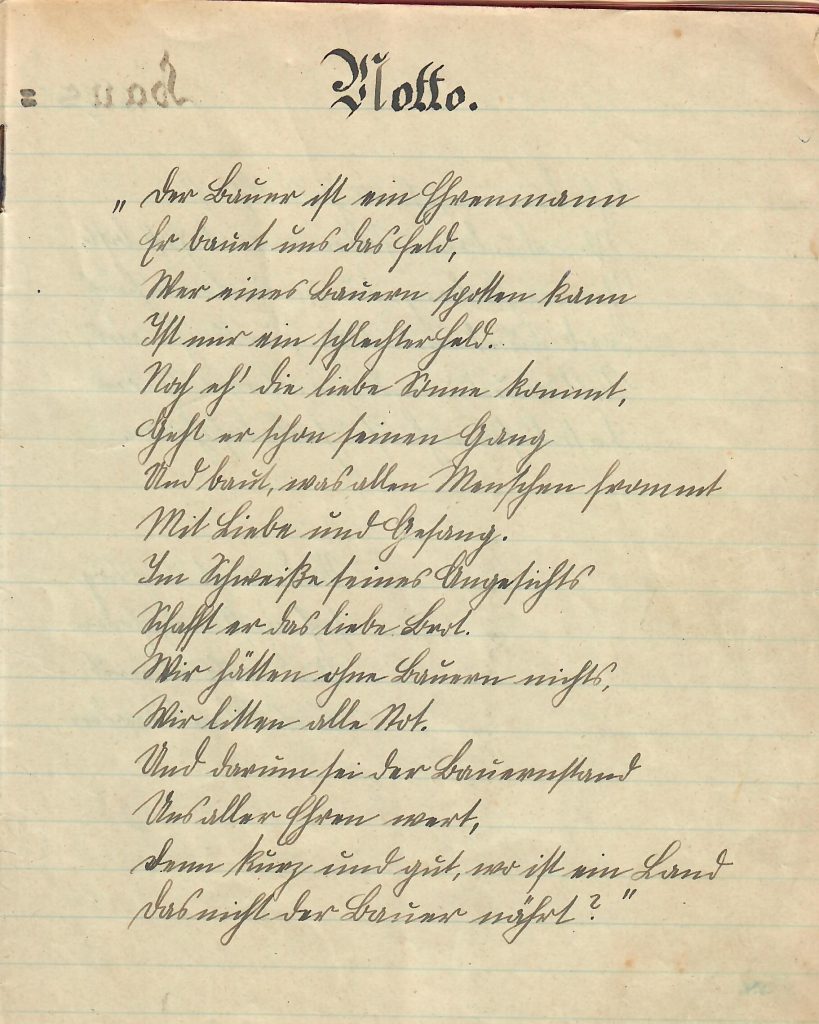 Motto.
„Der Bauer ist ein Ehrenmann
Er bauet uns das Feld,
Wer eines Bauern spotten kann
Ist mir ein schlechter Held.
Noch eh' die liebe Sonne kommt,
Geht er schon seinen Gang
Und baut, was allen Menschen frommt
Mit Liebe und Gesang.
Im Schweiße seines Angesichts
Schafft er das liebe Brot.
Wir hätten ohne Bauern nichts,
Wir litten alle Not.
Und darum sei der Bauernstand
Uns aller Ehren wert,
Denn kurz und gut, wo ist ein Land
Das nicht der Bauer nährt?"